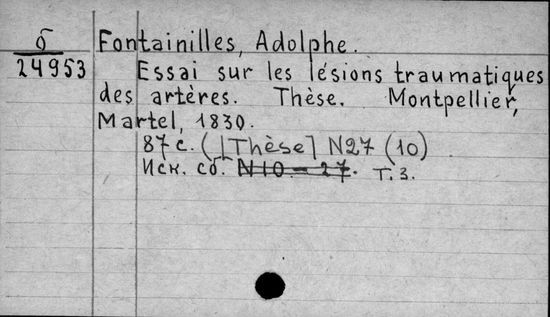 б Fontainilles, Adolphe.
24953 Essai sur les lésions traumatiques
des artères. Thèse. Montpellier,
Martel, 1830.
87 с. ([Thèse] N27 (10)
Иск. сб. N10 - 27. т. 3.